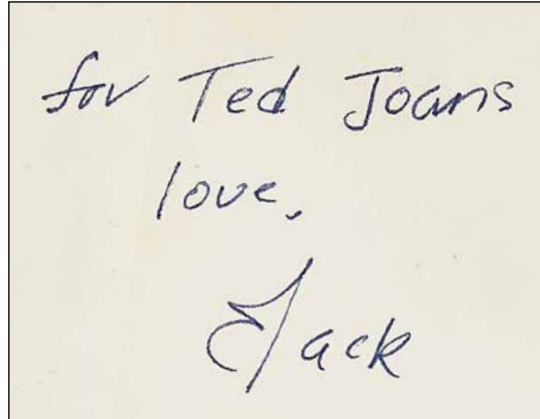 for Ted Joans
love,
Jack